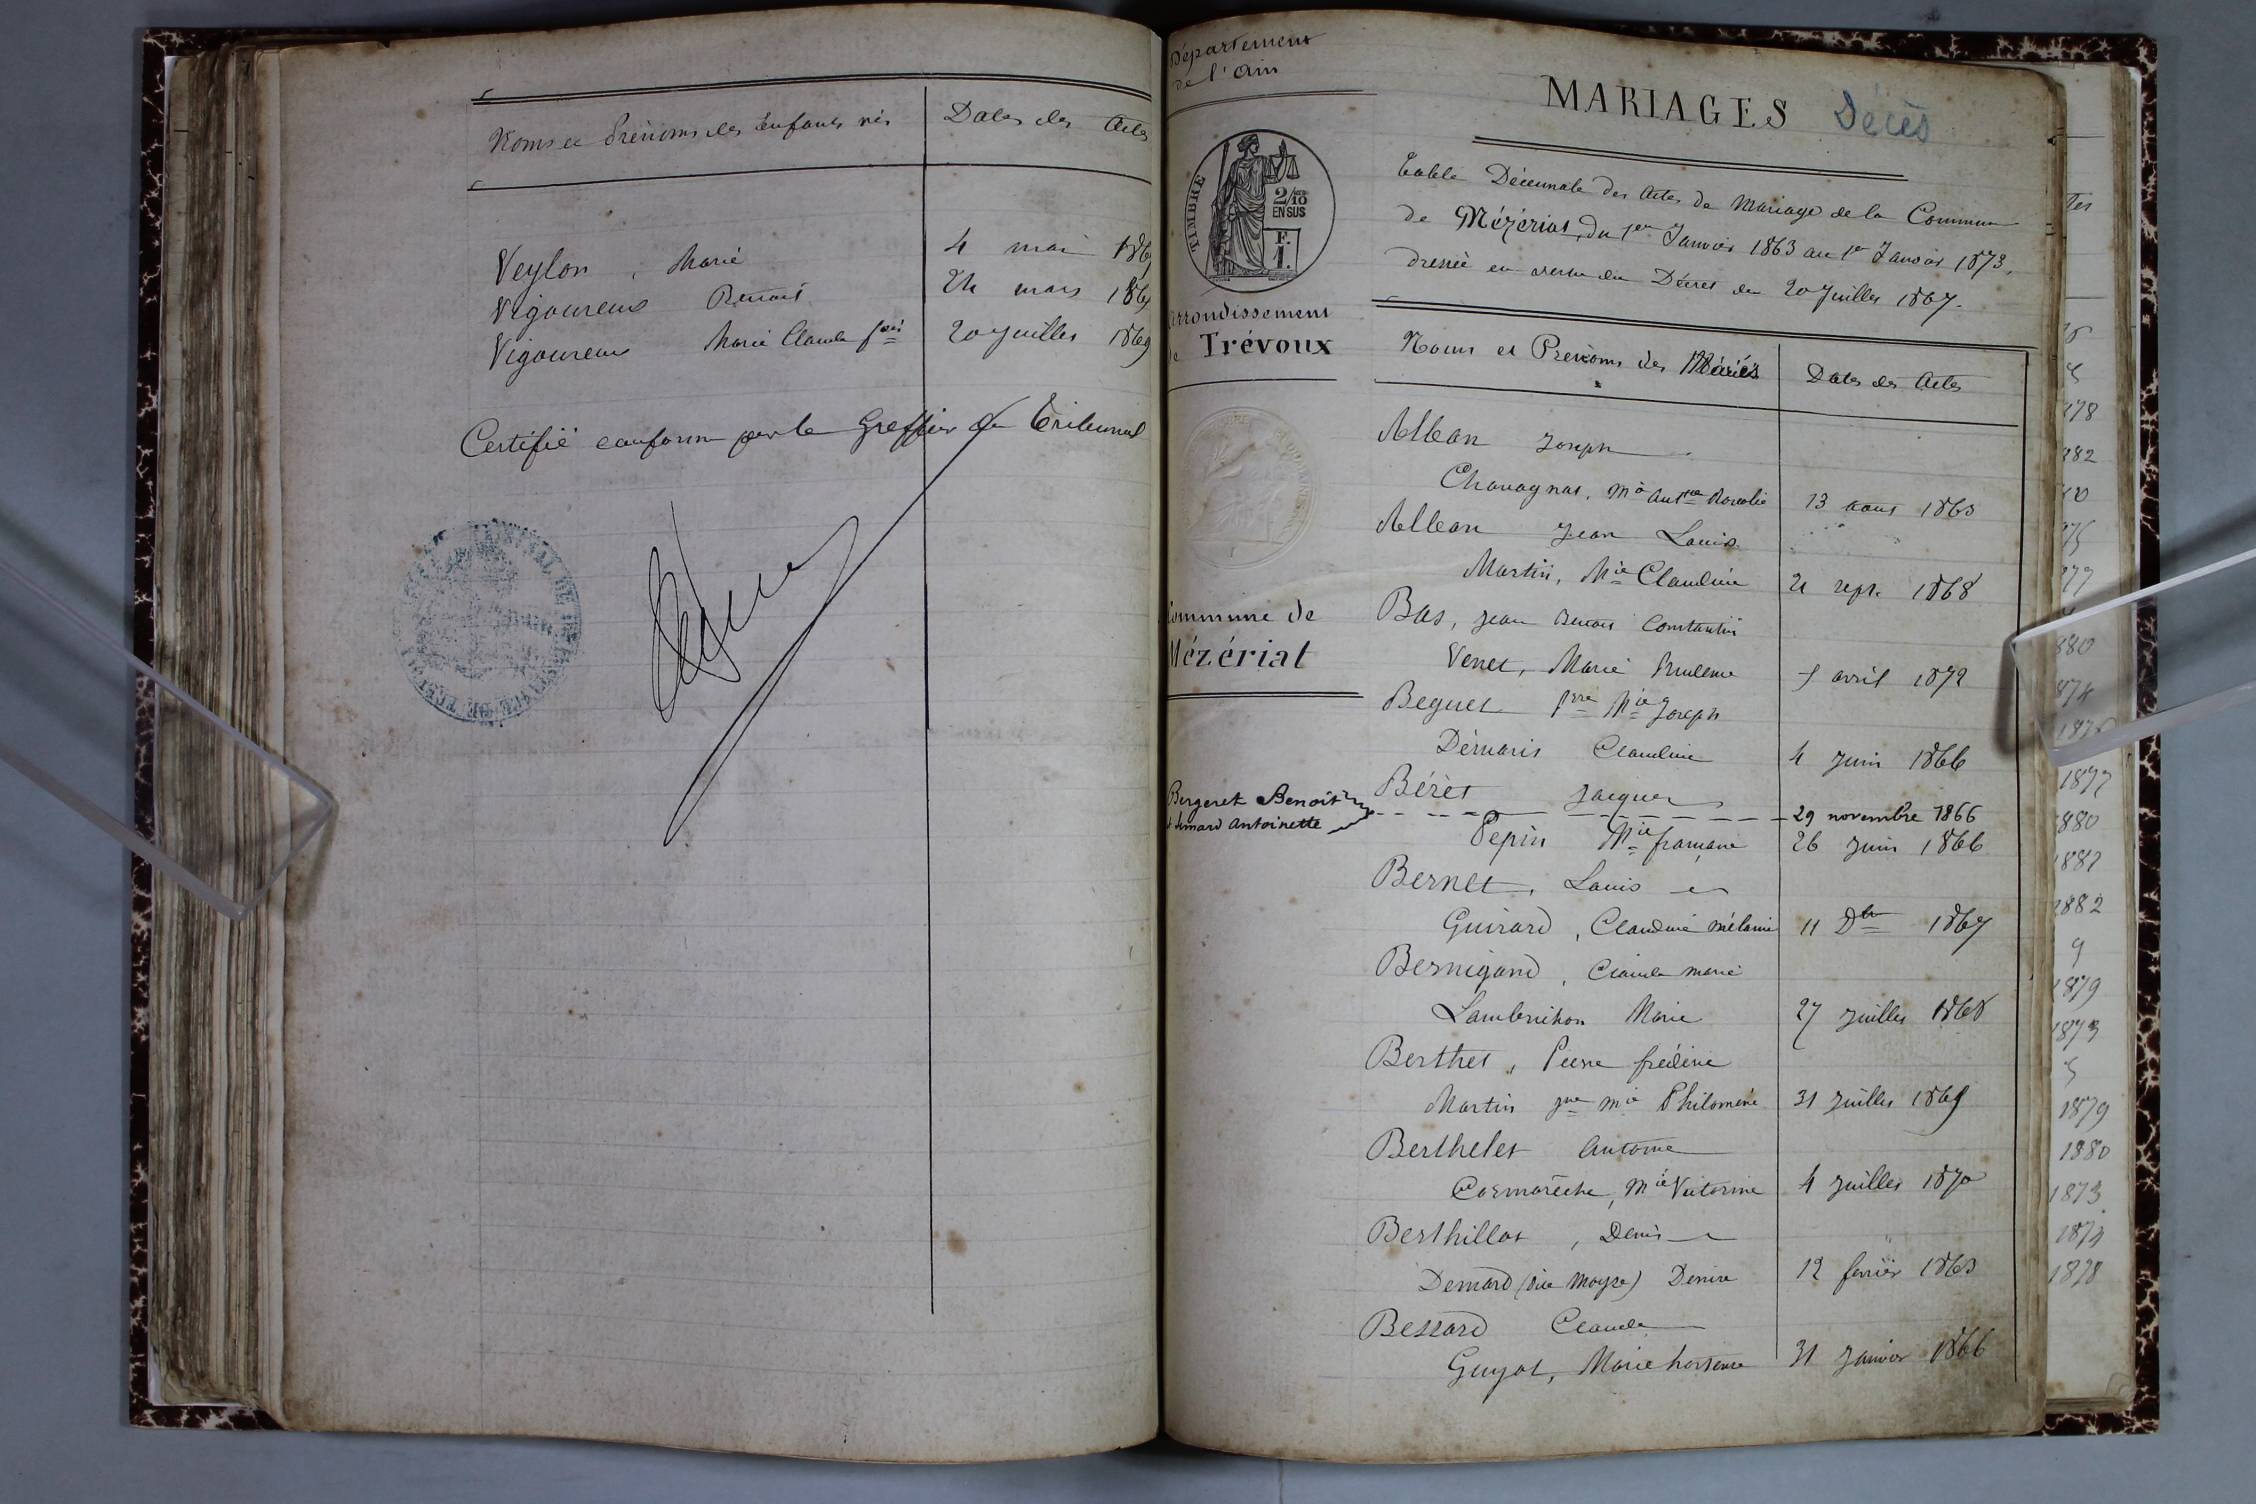 Noms et Prénoms des Enfants nés
Dates des Actes
Veylon, Marie
4 mai 186
Vigoureux Benoit
24 mars 186
Vigoureux Marie Claude
20 juillet 1869
Certifié conforme par le Greffier du Tribunal
Département
de l'Ain
TIMBRE
2/10
EN SUS
F.
1.
Arrondissement
de Trévoux
Commune de
Mézériat
Bergeret Benoît
Antoinette
MARIAGES Décès
Table Décennale des Actes de Mariage de la Commune
de Mézériat, du 1er Janvier 1863 au 1er Janvier 1873,
dressée en vertu du Décret du 20 Juillet 1807.
Noms et Prénoms des Mariés
Dates des Actes
Alban Joseph
Chavagnat, Rosalie
13 aout 1863
Alban Jean Louis
Martin, Mie Claudine
21 sept. 1868
Bas, Jean Benoit Constantin
Venet, Marie Prudence
5 avril 1872
Beguet Pre Mie Joseph
Démaris Claudine
4 Juin 1866
Bérét Jacques
29 novembre 1866
Pepin Mie françoise
26 Juin 1866
Bernet, Louis
Guirard, Claudine mélanie
11 Dbre 1867
Bernigand, Claude marie
Lambrichon Marie
27 Juillet 1868
Berthet, Pierre frédéric
Martin Jne Mie Philomène
31 Juillet 1869
Berthelet Antoine
Cormarêche, Mie Victorine
4 Juillet 1870
Berthillot, Denis
Demard (dite Moyse) Denise
12 février 1863
Bessard Claude
Guyot, Marie hortense
31 Janvier 1866
1877
1879
1880
1873
1878